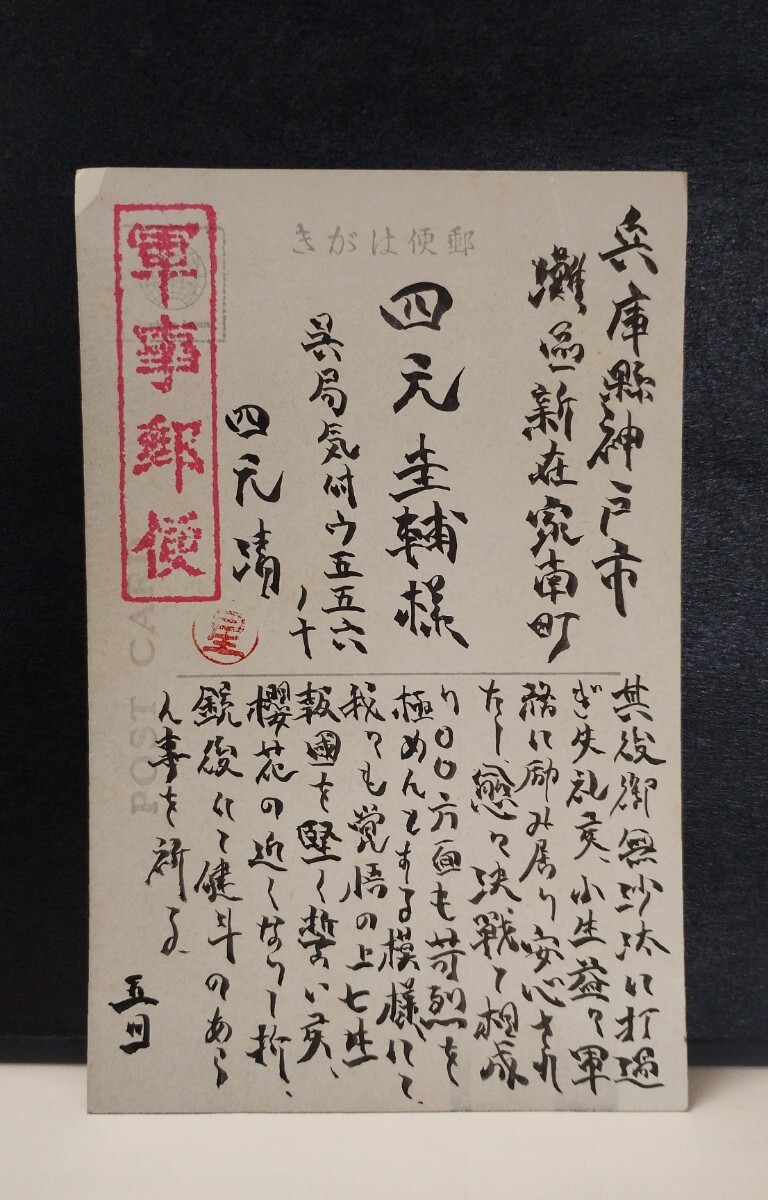 郵便はがき
軍事郵便
兵庫縣神戸市
灘區新在家南町
四元圭輔様
呉局気付ウ五五六
ノ十
四元清
POST CARD
其後御無沙汰に打過
ぎ失礼亥、小生益々軍
務に励み居り安心され
たし、愈々決戦と相成
り〇〇方面も苛烈を
極めんとする模様にて、
我々も覚悟の上七生
報國を堅く誓い亥、
櫻花の近くなりし折、
銃後にて健斗のあら
ん事を祈る、